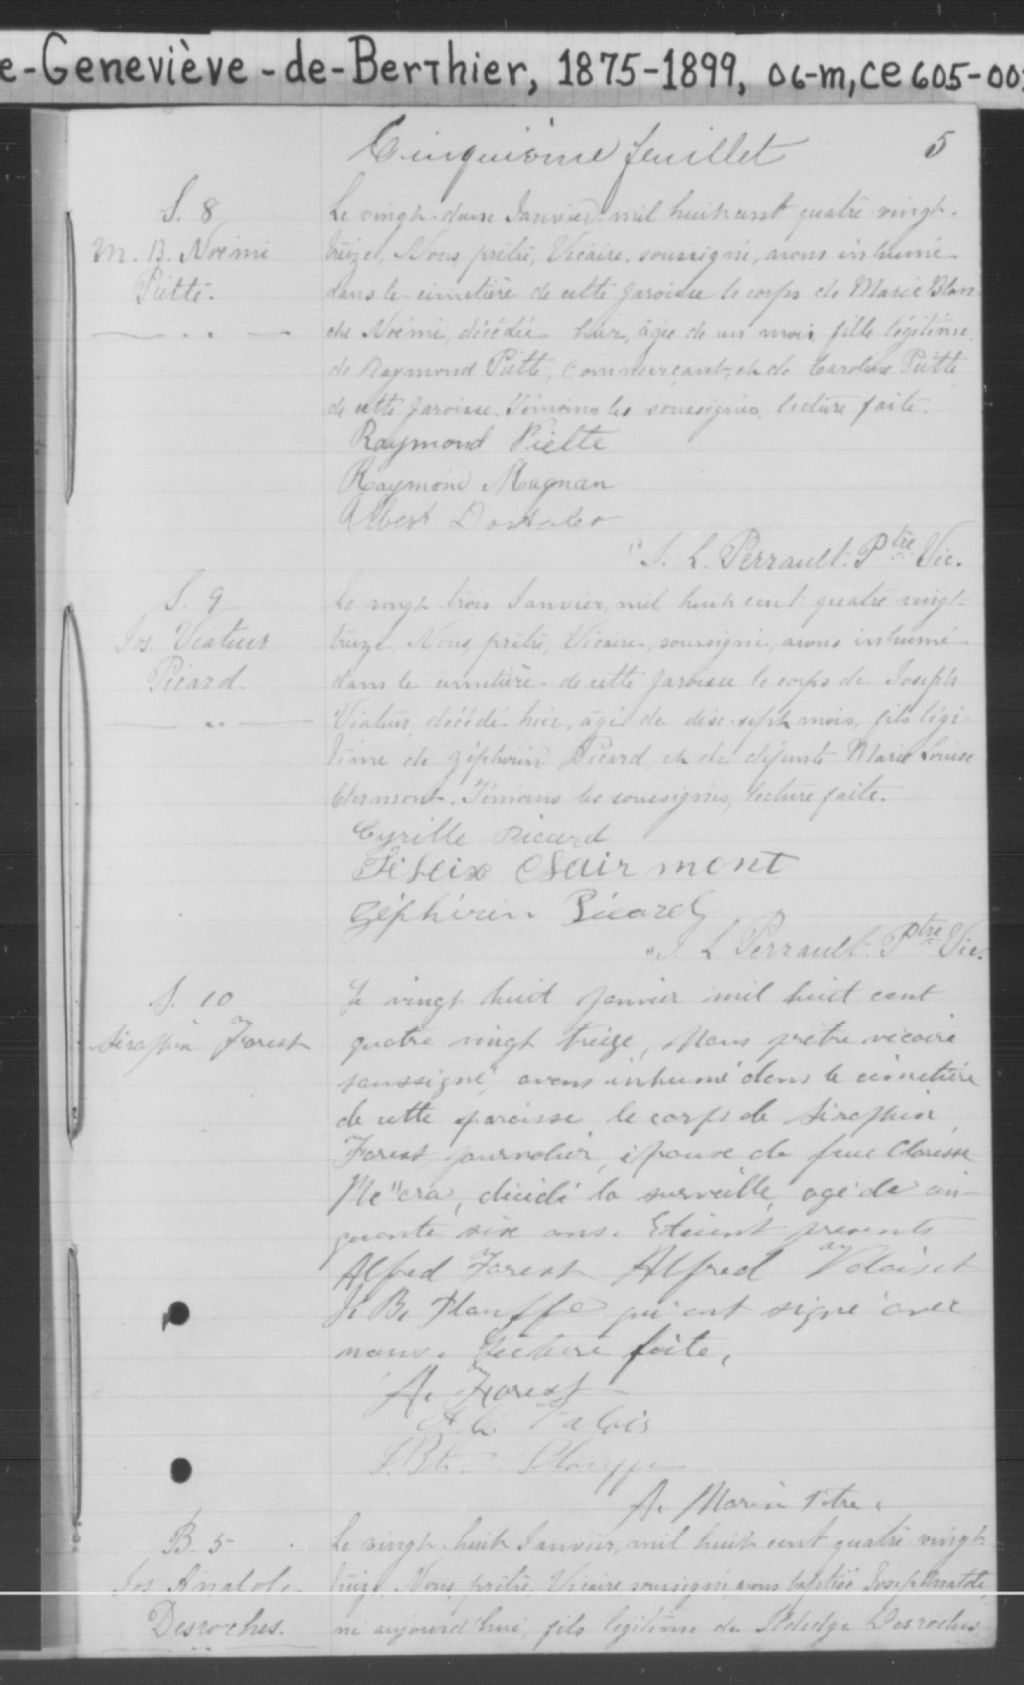 e-Geneviève-de-Berthier, 1875-1899, 06-m, ce 605-00
Cinquième feuillet 5
S. 8
M. B. Noémi
Piette.
Le vingt-deux Janvier mil huit cent quatre-vingt-
treize, Nous, prêtre, Vicaire, soussigné, avons inhumé
dans le cimetière de cette paroisse le corps de Marie Blan
che Noémi, décédée hier, âgée de un mois, fille légitime
de Raymond Piette, commerçant, et de Caroline Piette
de cette paroisse. Témoins les soussignés, lecture faite.
Raymond Piette
Raymond Magnan
Albert
J. L. Perrault. Ptre Vic.
S. 9
Jos. Viateur
Picard.
Le vingt trois Janvier, mil huit cent quatre vingt-
treize, Nous, prêtre, Vicaire, soussigné, avons inhumé
dans le cimetière de cette paroisse le corps de Joseph
Viateur, décédé hier, âgé de dix-sept mois, fils légi-
time de Zéphirin Picard, et de défunte Marie Louise
Clermont. Témoins les soussignés, lecture faite.
Cyrille Picard
Féleix Clairmont
Zéphirin Picard
J. L. Perrault. Ptre Vic.
S. 10
Séraphin Forest
Le vingt huit janvier mil huit cent
quatre vingt treize, Nous prêtre vicaire
soussigné, avons inhumé dans le cimetière
de cette paroisse le corps de Séraphin
Forest journalier, époux de feue Clarisse
décédé la surveille, agé de cin-
quante six ans. Etaient presents
Alfred Forest Alfred
J. B. Plouffe qui ont signé avec
nous. Lecture faite.
A. Forest
Valois
J. Bte. Plouffe
A. Morin Ptre.
B. 5
Jos. Anatole
Desroches.
Le vingt-huit Janvier, mil huit cent quatre-vingt
treize, Nous, prêtre, Vicaire soussigné, avons baptisé Joseph Anatole,
né aujourd'hui, fils légitime de Desroches,